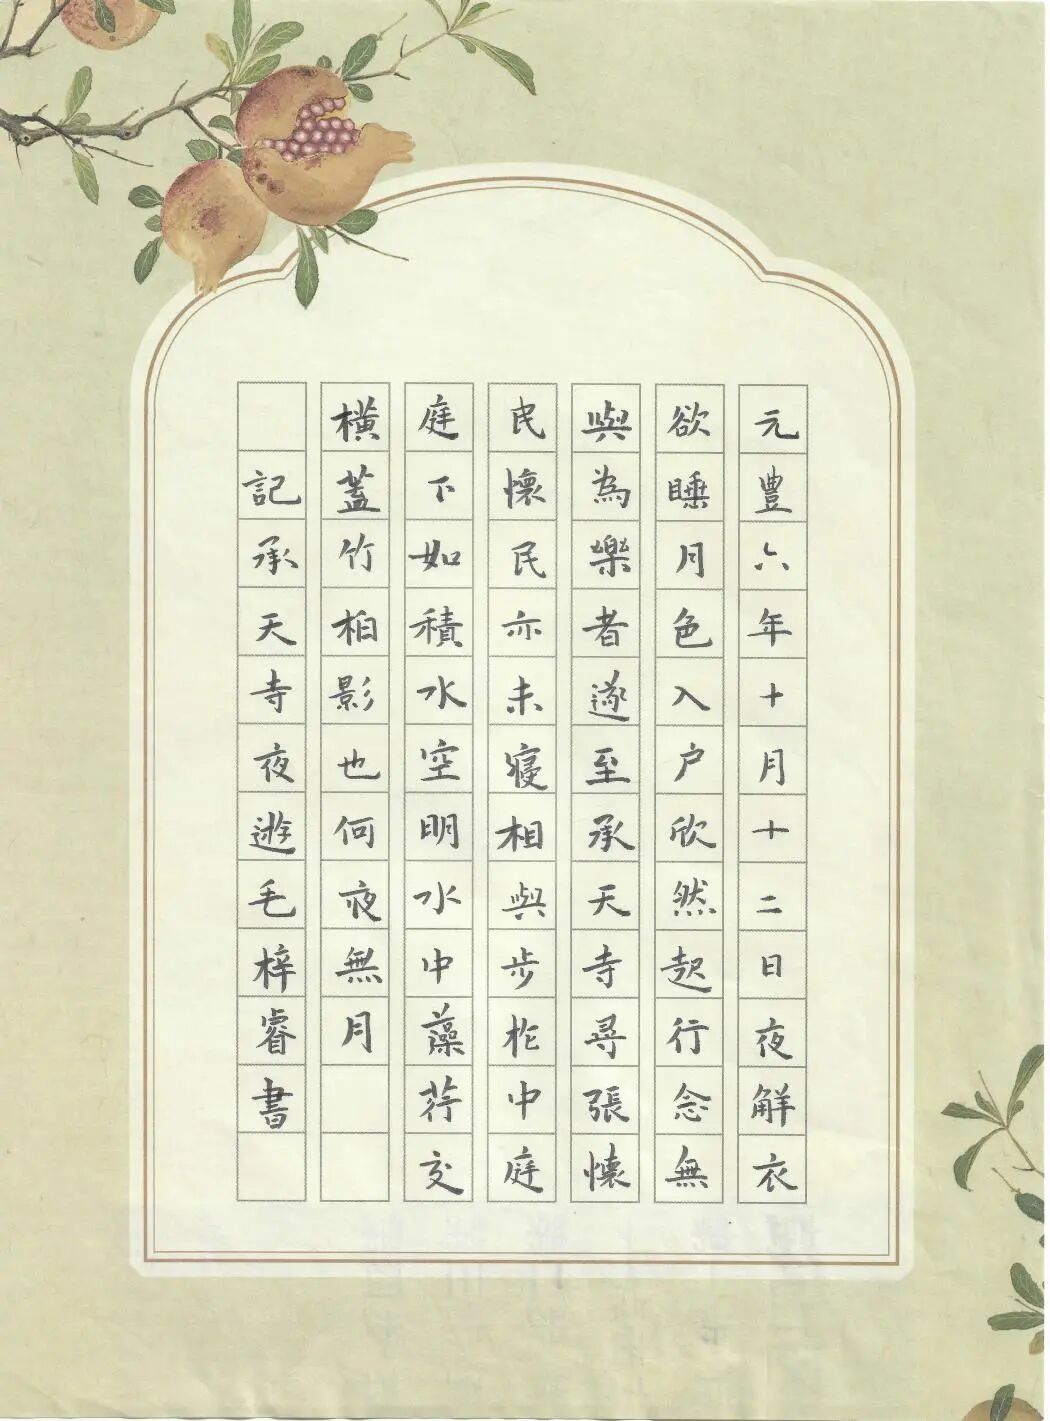 元豐六年十月十二日夜解衣
欲睡月色入户欣然起行念無
與為樂者遂至承天寺尋張懷
民懷民亦未寝相與步於中庭
庭下如積水空明水中藻荇交
橫蓋竹柏影也何夜無月
記承天寺夜遊毛梓睿書